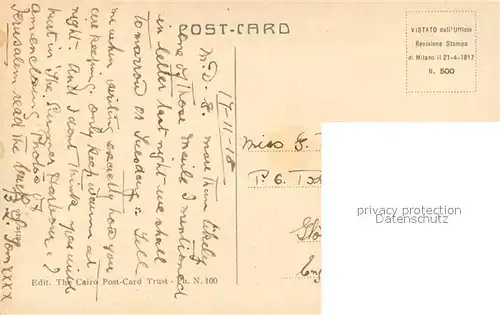 POST-CARD
VISTATO dall'Ufficio
Revisione Stampa
di Milano il 21-4-1917
N. 500
17-11-18
M.D.S. more than likely
one of those mails I mentioned
in letter last night we shall
tomorrow or Tuesday. Tell
me when writing exactly how you
are keeping. Only keep warm at
night. And I dont think you will
hurt in "The Summer Harbour". I
am enclosing Photos of
Jerusalem read the
Tom xxxx
Miss G.
P.6.
Edit. The Cairo Post-Card Trust - N. 100
privacy protection
oldthing.de